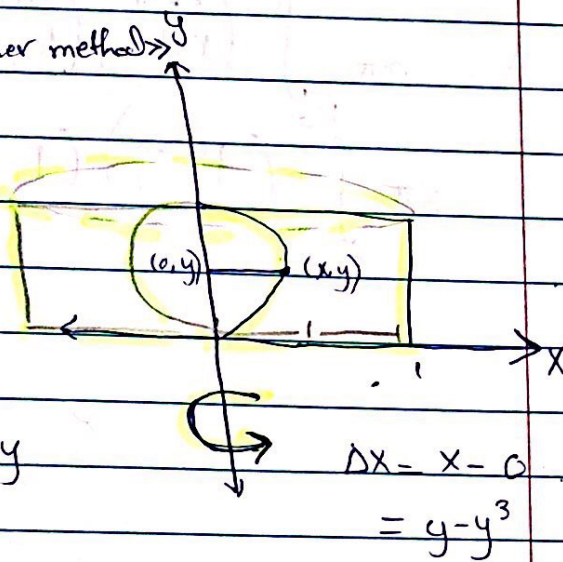 er method>>
y
(0,y) (x,y)
1
1
X
y
ΔX = X - 0
= y-y³